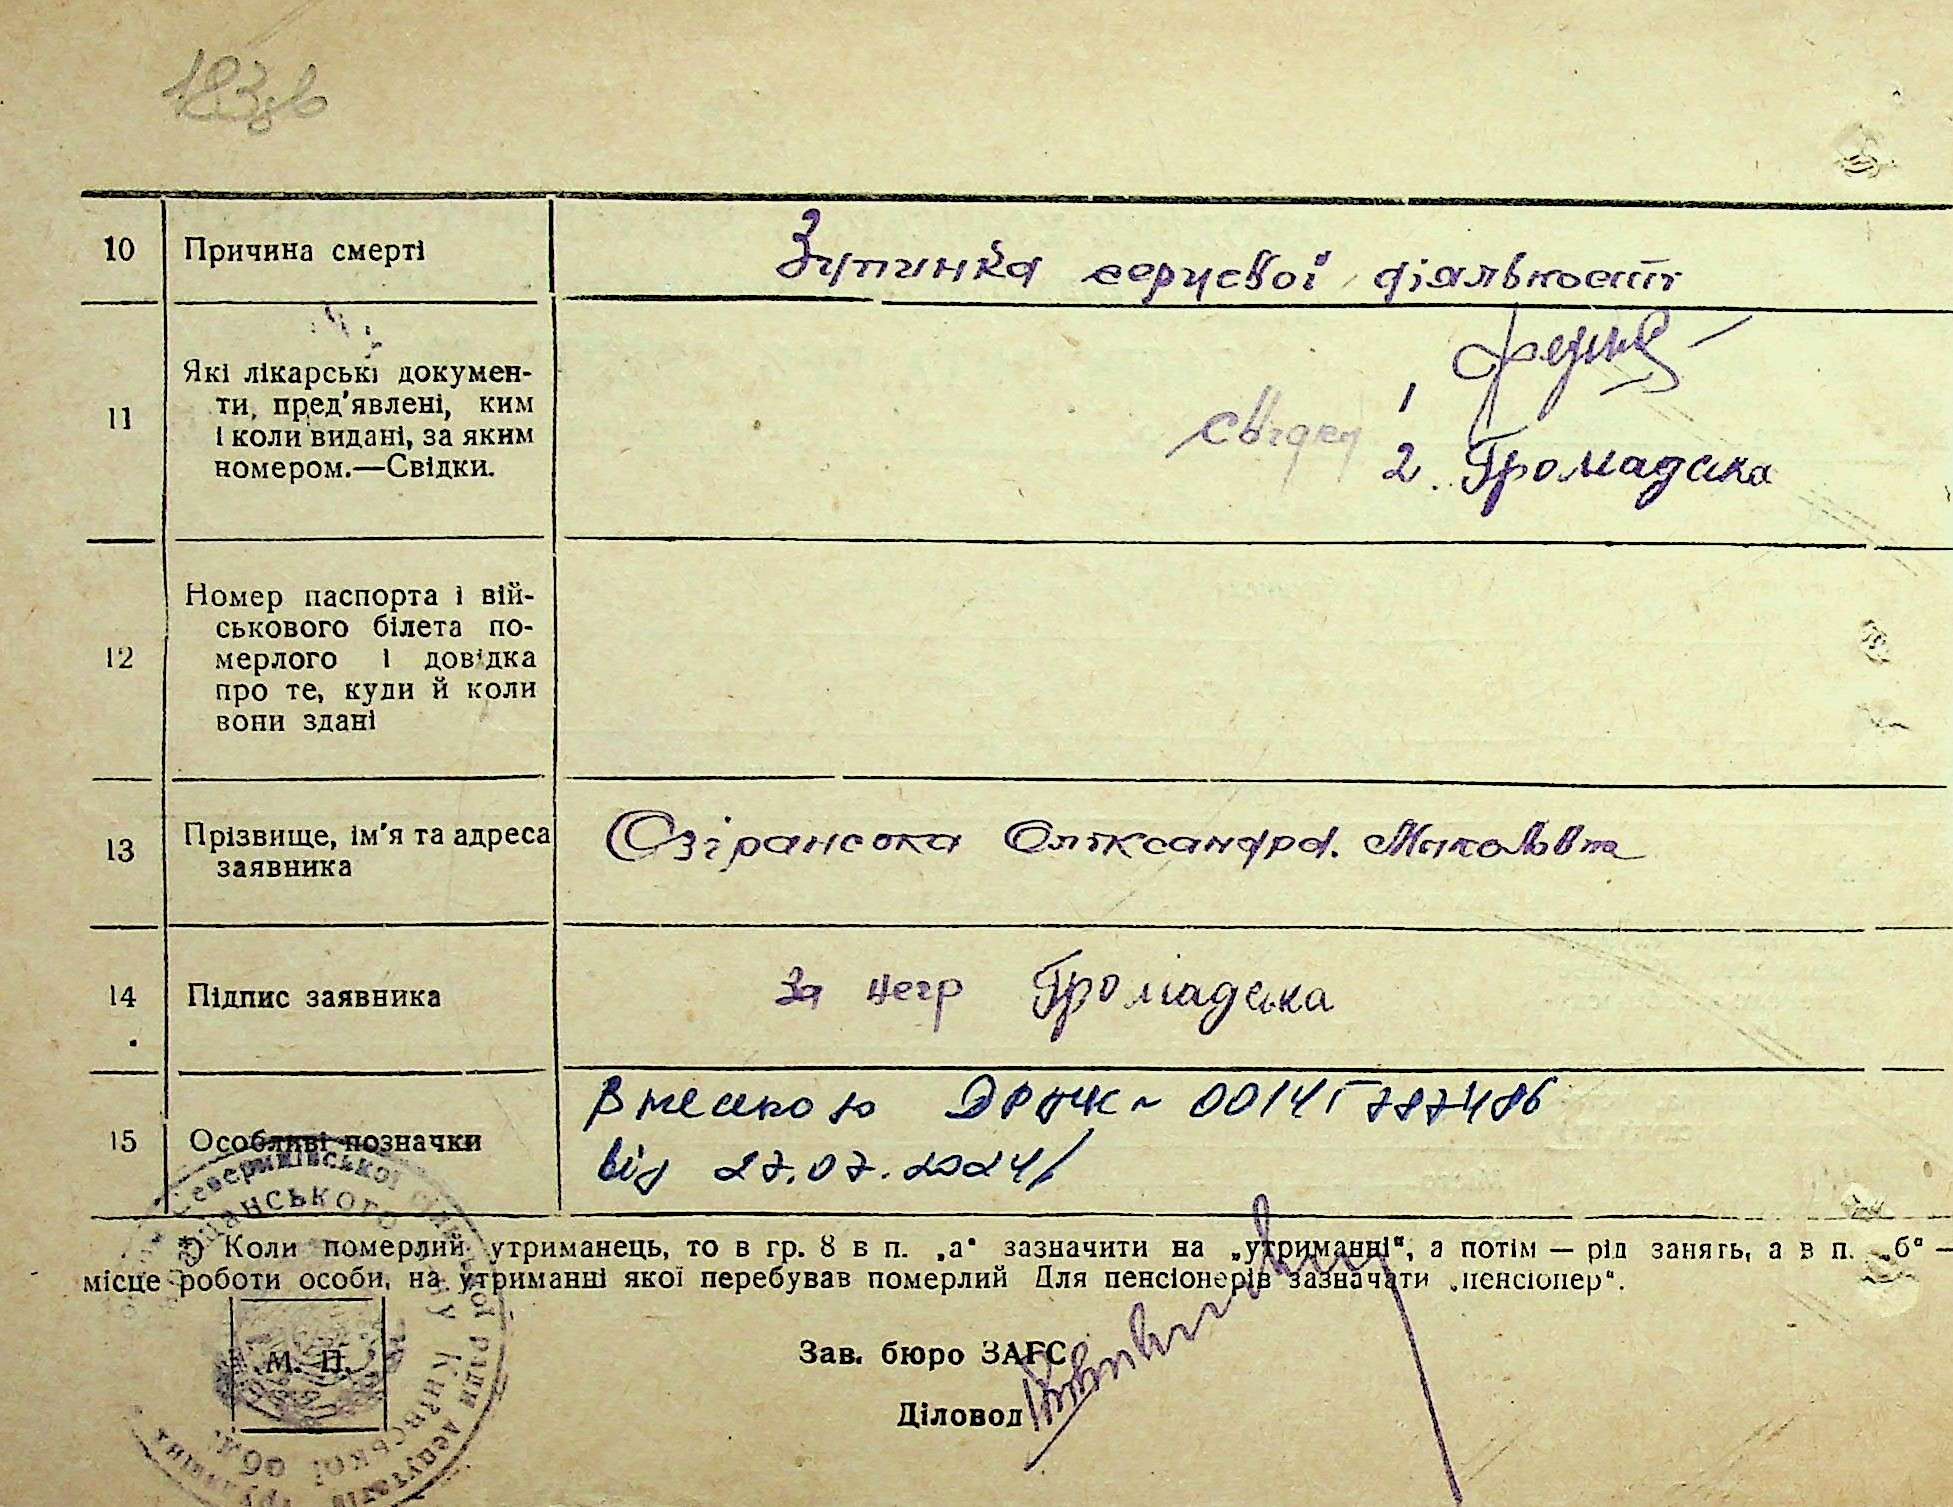 10 Причина смерті Зупинка серцевої діяльності
11 Які лікарські докумен-
ти, пред'явлені, ким
і коли видані, за яким
номером.—Свідки.
свідки 1
2. Громадська
12 Номер паспорта і вій-
ськового білета по-
мерлого і довідка
про те, куди й коли
вони здані
13 Прізвище, ім'я та адреса
заявника
Озіранська Олександра Миколівна
14 Підпис заявника за негр Громадська
15 Особливі позначки
від 27.07.2024
*) Коли померлий утриманець, то в гр. 8 в п. „а“ зазначити на „утриманні“, а потім — рід занять, а в п. „б“ —
місце роботи особи, на утриманні якої перебував померлий Для пенсіонерів зазначати „пенсіонер“.
М. П.
Зав. бюро ЗАГС
Діловод
Київської обл.